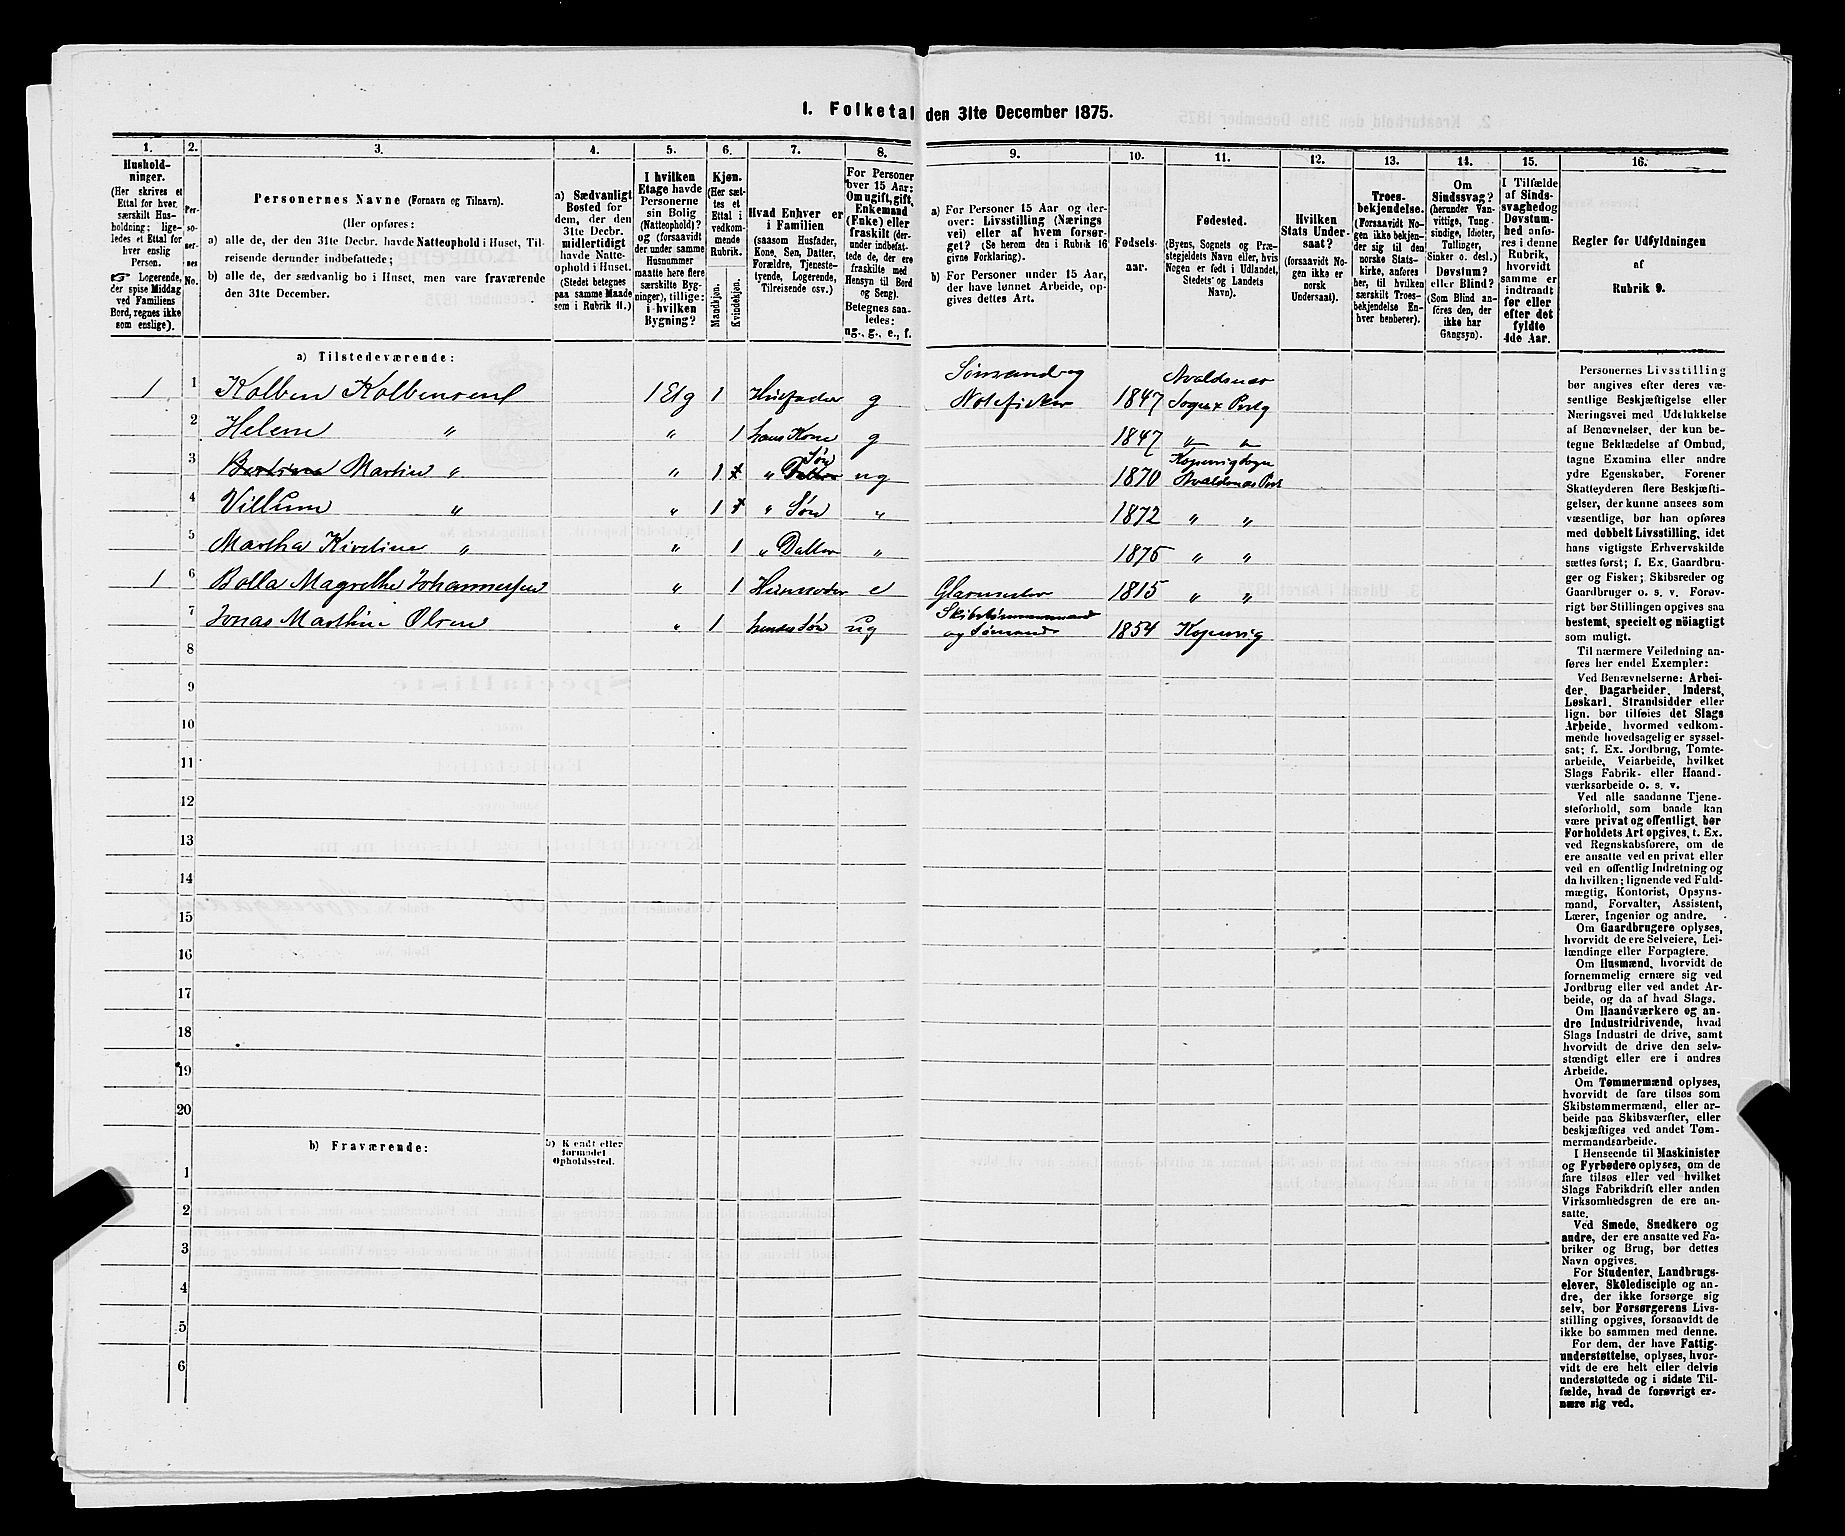 1. Folketal den 31te December 1875.
1.
Hushold-
ninger.
(Her skrives et
Ettal for hver
særskilt Hus-
holdning; lige-
ledes et Ettal for
hver enslig
Person.
☞ Logerende,
der spise Middag
ved Familiens
Bord, regnes ikke
som enslige).
2.
Per-
so-
ner-
nes
No.
3.
Personernes Navne (Fornavn og Tilnavn).
(Her opføres:
a) alle de, der den 31te Decbr. havde Natteophold i Huset, Til-
reisende derunder indbefattede;
b) alle de, der sædvanlig bo i Huset, men vare fraværende
den 31te December.
4.
a) Sædvanligt
Bosted for
dem, der den
31te Decbr.
midlertidigt
havde Natte-
ophold i Huset.
(Stedet betegnes
paa samme Maade
som i Rubrik 11.)
5.
I hvilken
Etage havde
Personerne
sin Bolig
(Natteophold)?
og (forsaavidt
der under samme
Husnummer
maatte høre flere
særskilte Byg-
ninger), tillige:
i hvilken
Bygning?
6.
Kjøn.
(Her sæt-
tes et
Ettal i
vedkom-
mende
Rubrik.
Mandkjøn.
Kvindekjøn.
7.
Hvad Enhver er
i Familien
(saasom Husfader,
Kone, Søn, Datter,
Forældre, Tjeneste-
tyende, Logerende,
Tilreisende osv.)
8.
For Personer
over 15 Aar:
Om ugift, gift,
Enkemand
(Enke) eller
fraskilt (der-
under indbefat-
tede de, der ere
fraskilte med
Hensyn til Bord
og Seng).
Betegnes saa-
ledes:
ug., g., e., f.
9.
a) For Personer 15 Aar og der-
over: Livsstilling (Nærings
vei) eller af hvem forsør-
get? (Se herom den i Rubrik 16
givne Forklaring).
b) For Personer under 15 Aar,
der have lønnet Arbeide, op-
gives dettes Art.
10.
Fødsels-
aar.
11.
Fødested.
(Byens, Sognets og Præ-
stegjeldets Navn eller, hvis
Nogen er født i Udlandet,
Stedets og Landets
Navn).
12.
Hvilken
Stats Under-
saat?
(forsaavidt No-
gen ikke er
norsk
Undersaat).
13.
Troes-
bekjendelse.
(Forsaavidt No-
gen ikke bekjen-
der sig til den
norske Stats-
kirke, anføres
her, til hvilken
særskilt Troes-
bekjendelse En-
hver henhører).
14.
Om
Sindssvag?
(herunder Van-
vittige, Tung-
sindige, Idioter,
Tullinger,
Sinker o. desl.)
Døvstum?
eller Blind?
(Som Blind an-
føres den, der
ikke har
Gangsyn).
15.
I Tilfælde
af Sinds-
svaghed og
Døvstum-
hed anfø-
res i denne
Rubrik,
hvorvidt
samme er
indtraadt
før eller
efter det
fyldte
4de Aar.
16.
Regler for Udfyldningen
af
Rubrik 9.
a) Tilstedeværende:
1 1 Kolben Kolbensen 1 Etg 1 Husfader g Sømand og Notefisker 1847 Avaldsnæs Sogn & Pretg
2 Helene " " 1 hans Kone g 1847 " "
3 Martin " " 1 " Søn ug 1870 Kopervig Sogn Avaldsnæs Prst
4 Villum " " 1 " Søn " 1872 " "
5 Martha Kirstine " " 1 " Datter " 1875 " "
1 6 Bolla Magrethe Johannessen " 1 Husmoder e 1815 " "
7 Jonas Marthin Olsen " 1 hendes Søn ug Skibstømmermand og Sømand 1854 Kopervig
8
9
10
11
12
13
14
15
16
17
18
19
20
b) Fraværende:
b) Kjendt eller
formodet
Opholdssted.
1
2
3
4
5
6
Personernes Livsstilling
bør angives efter deres væ-
sentlige Beskjæftigelse eller
Næringsvei med Udelukkelse
af Benævnelser, der kun be-
tegne Beklædelse af Ombud,
tagne Examina eller andre
ydre Egenskaber. Forener
Skatteyderen flere Beskjæfti-
gelser, der kunne ansees som
væsentlige, bør han opføres
med dobbelt Livsstilling, idet
hans vigtigste Erhvervskilde
sættes først; f. Ex. Gaardbru-
ger og Fisker; Skibsreder og
Gaardbruger o. s. v. Forøv-
rigt bør Stillingen opgives saa
bestemt, specielt og nöiagtigt
som muligt.
Til nærmere Veiledning an-
føres her endel Exempler:
Ved Benævnelserne: Arbei-
der, Dagarbeider, Inderst,
Løskarl, Strandsidder eller
lign. bør tilføies det Slags
Arbeide, hvormed vedkom-
mende hovedsagelig er syssel-
sat; f. Ex. Jordbrug, Tomte-
arbeide, Veiarbeide, hvilket
Slags Fabrik- eller Haand-
værksarbeide o. s. v.
Ved alle saadanne Tjene-
steforhold, som baade kan
være privat og offentligt, bør
Forholdets Art opgives, t. Ex.
ved Regnskabsførere, om de
ere ansatte ved en privat eller
ved en offentlig Indretning og
da hvilken; lignende ved Fuld-
mægtig, Kontorist, Opsyns-
mand, Forvalter, Assistent,
Lærer, Ingeniør og andre.
Om Gaardbrugere oplyses,
hvorvidt de ere Selveiere, Lei-
lændinge eller Forpagtere.
Om Husmænd, hvorvidt de
fornemmelig ernære sig ved
Jordbrug eller ved andet Ar-
beide, og da af hvad Slags.
Om Haandværkere og an-
dre Industridrivende, hvad
Slags Industri de drive, samt
hvorvidt de drive den selv-
stændigt eller ere i andres
Arbeide.
Om Tømmermænd oplyses,
hvorvidt de fare tilsøs som
Skibstømmermænd, eller ar-
beide paa Skibsværfter, eller
beskjæftiges ved andet Tøm-
mermandsarbeide.
I Henseende til Maskinister
og Fyrbødere oplyses, om de
fare tilsøs eller ved hvilket
Slags Fabrikdrift eller anden
Virksomhedsgren de ere an-
satte.
Ved Smede, Snedkere og
andre, der ere ansatte ved Fa-
briker og Brug, bør dettes
Navn opgives.
For Studenter, Landbrugs-
elever, Skoledisciple og an-
dre, der ikke forsørge sig
selv, bør Forsørgerens Livs-
stilling opgives, forsaavidt de
ikke bo sammen med denne.
For dem, der have Fattig-
understøttelse, oplyses, hvor-
vidt de ere helt eller delvis
understøttede og i sidste Til-
fælde, hvad de forøvrigt er-
nære sig ved.